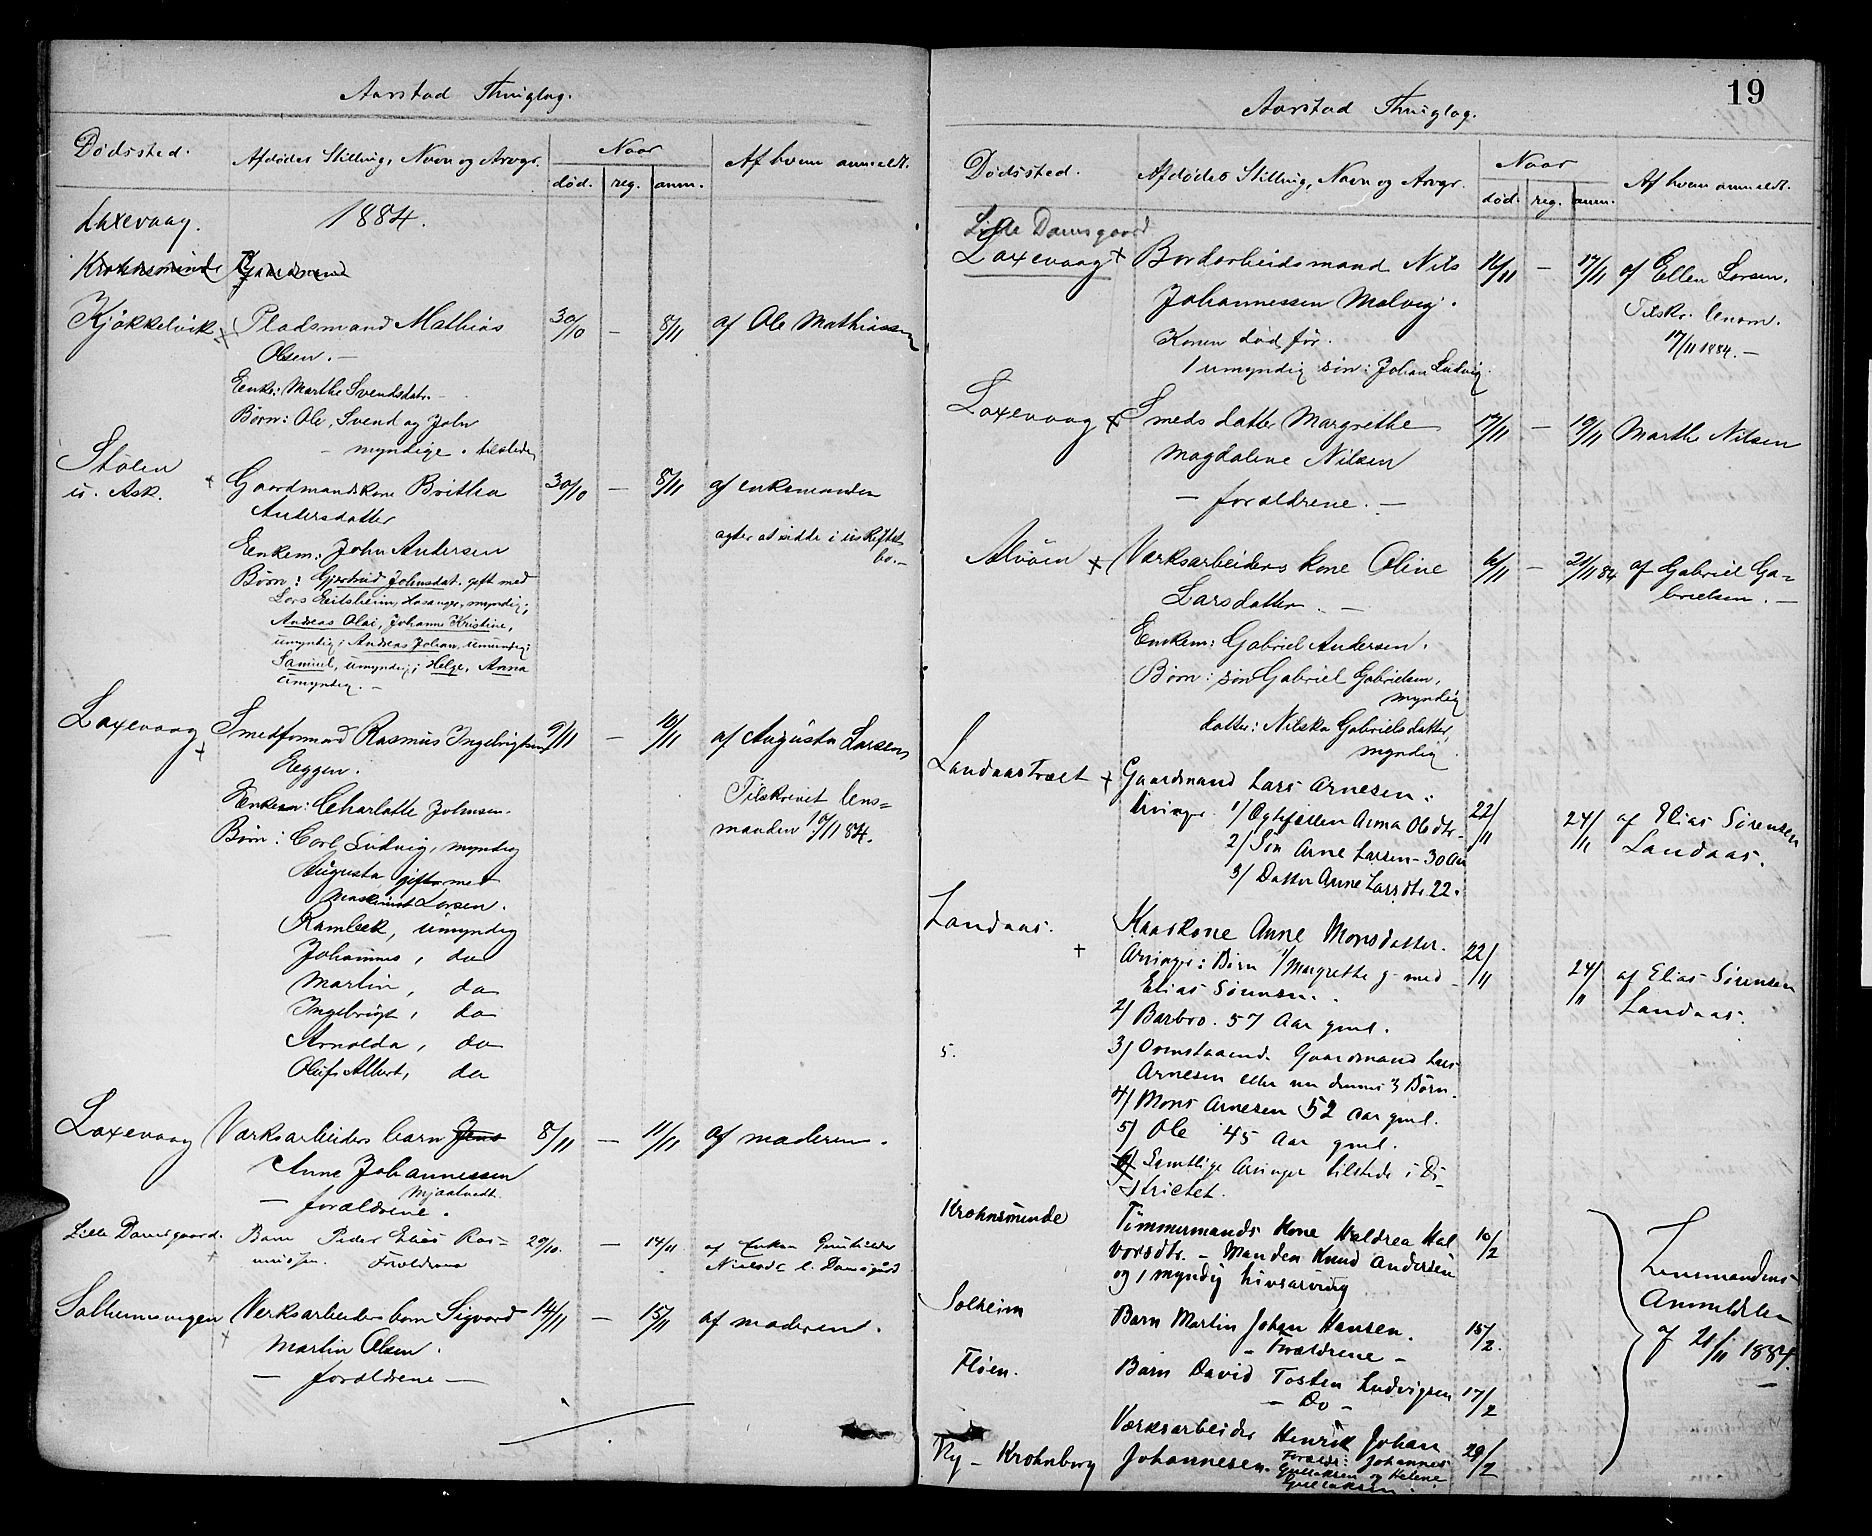 Aarstad Thinglag.
Dødssted.
Afdødes Stilling, Navn og Arvgr.
Naar
død. reg. anm.
Af hvem anmeldt.
Laxevaag. 1884.
Krohnsminde Gaardmand
Kjøkkelvik + Pladsmand Mathias 30/10 — 8/11 af Ole Mathiassen
Olsen. —
Enke: Marthe Svendsdatr. —
Børn: Ole, Svend og John
myndige. tilstede
Stølen + Gaardmandskone Britha 30/10 — 8/11 af enkemanden
u. Ask. Andersdatter
agter at sidde i uskiftet
bo. —
Enkem: John Andersen
Børn: Gjertrud Johnsdat. gift med
Lars Eitsheim, Hosanger, myndig;
Andreas Olai, Johanne Kristine,
umyndig; Andreas Johan, umyndig;
Samuel, umyndig; Helge, Anna
umyndig. —
Laxevaag + Smedformand Rasmus Ingebrigtsen 9/11 — 10/11 af Augusta Larsen
Eeggen.
Tilskrevet lens=
manden 10/11 84.
Enken: Charlotte Johnsen.
Børn: Carl Ludvig, myndig
Augusta gift med
Maskinist Larsen.
Rambek, umyndig
Johannes, do
Martin, do
Ingebrigt, do
Arnolda, do
Oluf Albert, do
Laxevaag Værksarbeiders barn Jens 8/11 — 11/11 af moderen.
Anne Johannessen
Mjaatvedt.
— forældrene.
Lille Damsgaard. + Barn Peder Elias Ras= 29/10. — 14/11 af Enken Gunhilde
mussen. Forældrene
Nielsdr l. Damsgård
Solheimsvigen + Værksarbeiders barn Sigvard 14/11 — 15/11 af moderen.
Martin Olsen.
— forældrene —
19
Aarstad Thinglag.
Dødssted.
Afdødes Stilling, Navn og Arvgr.
Naar
død. reg. anm.
Af hvem anmeldt.
Lille Damsgaard
Laxevaag + Bordarbeidsmand Nils 16/11 — 17/11 af Ellen Larsen.
Johannessen Malvig.
Tilskr. lensm.
17/11 1884. —
Konen død før.
1 umyndig søn: Johan Ludvig.
Laxevaag + Smeds datter Margrethe 17/11 — 19/11 Marthe Nilsen
Magdalene Nilsen
— forældrene. —
Alvøen + Værksarbeiders kone Oline 6/11 — 21/11 84 af Gabriel Ga=
Larsdatter. —
brielsen. —
Enkem: Gabriel Andersen.
Børn: søn Gabriel Gabrielsen,
myndig
datter: Nilska Gabrielsdatter,
myndig.
Landaastræet + Gaardmand Lars Arnesen: 22/11 24/11 af Elias Sørensen
Landaas.
Arvinger. 1/ Egtefællen Anna Oledtr
2/ Søn Arne Larsen - 30 Aar
3/ Datter Anne Larsdtr. 22.
Landaas. + Kaarkone Anne Monsdatter. 22/11 24/11 af Elias Sørensen
Landaas.
Arvinger: Børn 1/ Margrethe g. med
Elias Sørensen.
2/ Barbro. 57 Aar gml.
5. 3/ Ovenstaaende Gaardmand Lars
Arnesen eller nu dennes 3 Børn.
4/ Mons Arnesen 52 Aar gml.
5/ Ole 45 Aar gml.
Samtlige Arvinger tilstede i Di-
strictet.
Krohnsminde Tømmermands Kone Haldrea Hal 10/2
vorsdtr. — Manden Knud Andersen
og 1 myndig Livsarving
Lensmandens
Anmeldelse
af 21/11 1884.
Solheim Barn Martin Johan Hansen. 15/2.
— Forældrene —
Fløen. Barn David Tosten Ludvigsen 17/2
— Do —
Værksarbeider Henrik Johan
Ny-Krohnborg Johannesen. 29/2
Forældr: Johannes
Gulliksen og Helene
Gulliksen.